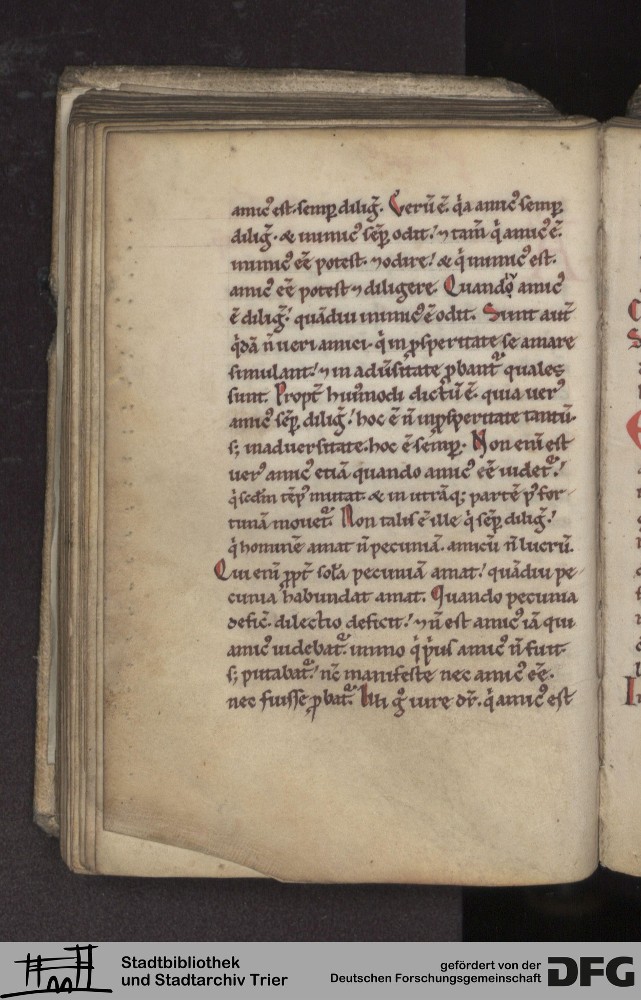 amic᷒ est. semꝑ diligꝉ. Verū ē. qͥa amic᷒ semꝑ
diligꝉ. & inimic᷒ sēꝑ odit. ⁊ tam̄ qͥ amic᷒ ē.
inimic᷒ eē potest. ⁊ odire. & qͥ inimic᷒ est.
amic᷒ eē potest ⁊ diligere. Quando amic᷒
ē diligꝉ. quādiu inimic᷒ ē odit. Sunt aut̄
qͥdā n̄ ueri amici. qͥ in ꝓsperitate se amare
simulant. ⁊ in adūsitate ꝓbant᷑ quales
sunt. Propt̄ hui᷒modi dictū ē. quia uer᷒
amic᷒ sēꝑ diligꝉ. hoc ē n̄ in ꝓsperitate tantū.
s; in aduersitate. hoc ē semꝑ. Non enī est
uer᷒ amic᷒ etiā quando amic᷒ eē uidet᷑.
qͥ scdm̄ tēp᷒ mutat. & in utrāq; partē ꝑ for
tunā mouet᷑. Non talis ē ille qͥ sēꝑ diligꝉ.
qͥ hominē amat n̄ pecuniā. amicū n̄ lucrū.
Qui enī ꝓpt̄ solā pecuniā amat. quādiu pe
cunia habundat amat. Quando pecunia
defic̄. dilectio deficit. ⁊ n̄ est amic᷒ iā qui
amic᷒ uidebat᷑. immo qͥ pͥus amic᷒ n̄ fuit.
s; putabat᷑. nc̄ manifeste nec amic᷒ eē.
nec fuisse ꝓbat᷑. Illi gͦ iure dr̄. qͥ amic᷒ est
Stadtbibliothek
und Stadtarchiv Trier
gefördert von der
Deutschen Forschungsgemeinschaft
DFG